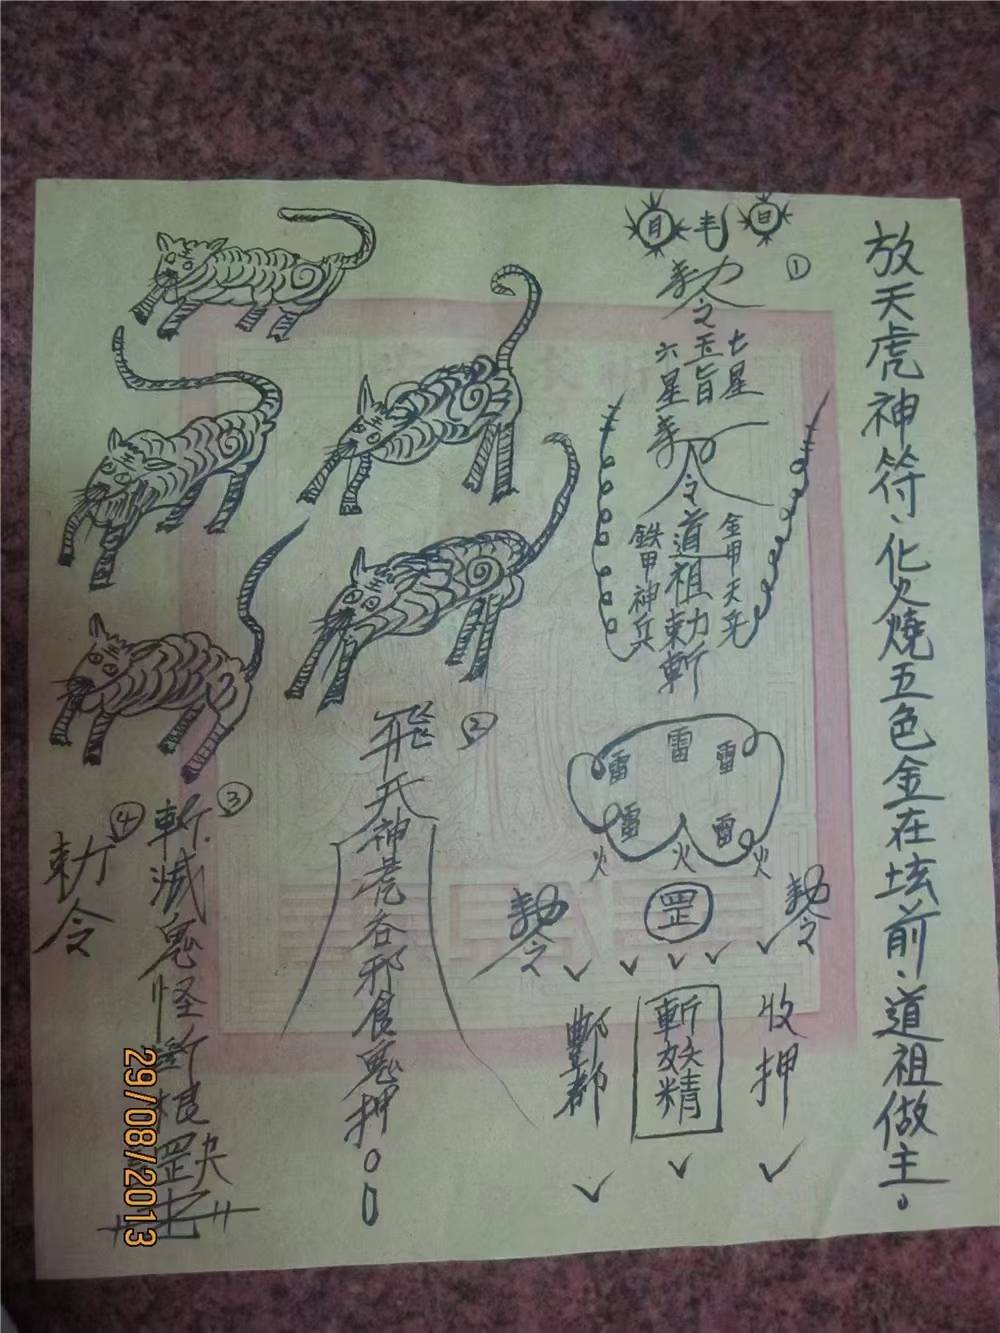 放天虎神符、化火燒五色金在坛前、道祖做主。
①
日 月
勅令
七星
玉旨
六星
勅令
金甲天兵
道祖勅斬
鉄甲神兵
雷 雷 雷
雷 雷
火 火 火
勅令 罡 勅令
收押
斬妖精
酆都
②
飛天神虎吞邪食鬼押
③
斬滅鬼怪斷根罡決
④
勅令
29/08/2013